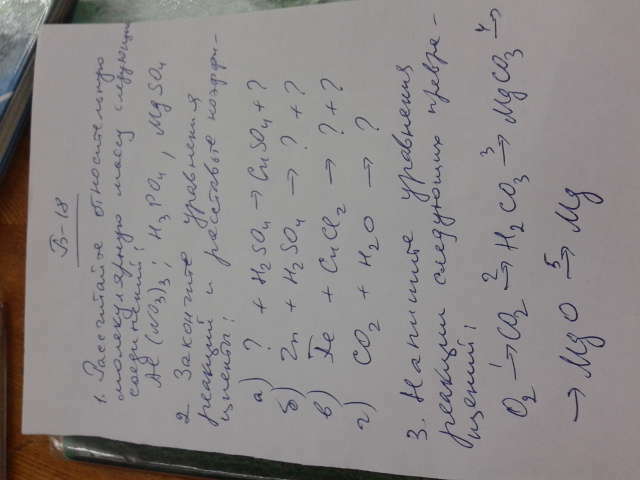 Б-18
1. Рассчитайте относительную
молекулярную массу следующих
соединений:
Al(NO₃)₃; H₃PO₄, MgSO₄
2 Закончите уравнения
реакций и расставьте коэффи-
циенты:
а) ? + H₂SO₄ → CuSO₄ + ?
б) Zn + H₂SO₄ → ? + ?
в) Fe + CuCl₂ → ? + ?
г) CO₂ + H₂O → ?
3. Напишите уравнения
реакции следующих превра-
щений:
O₂ 1→ CO₂ 2→ H₂CO₃ 3→ MgCO₃ 4→
→ MgO 5→ Mg